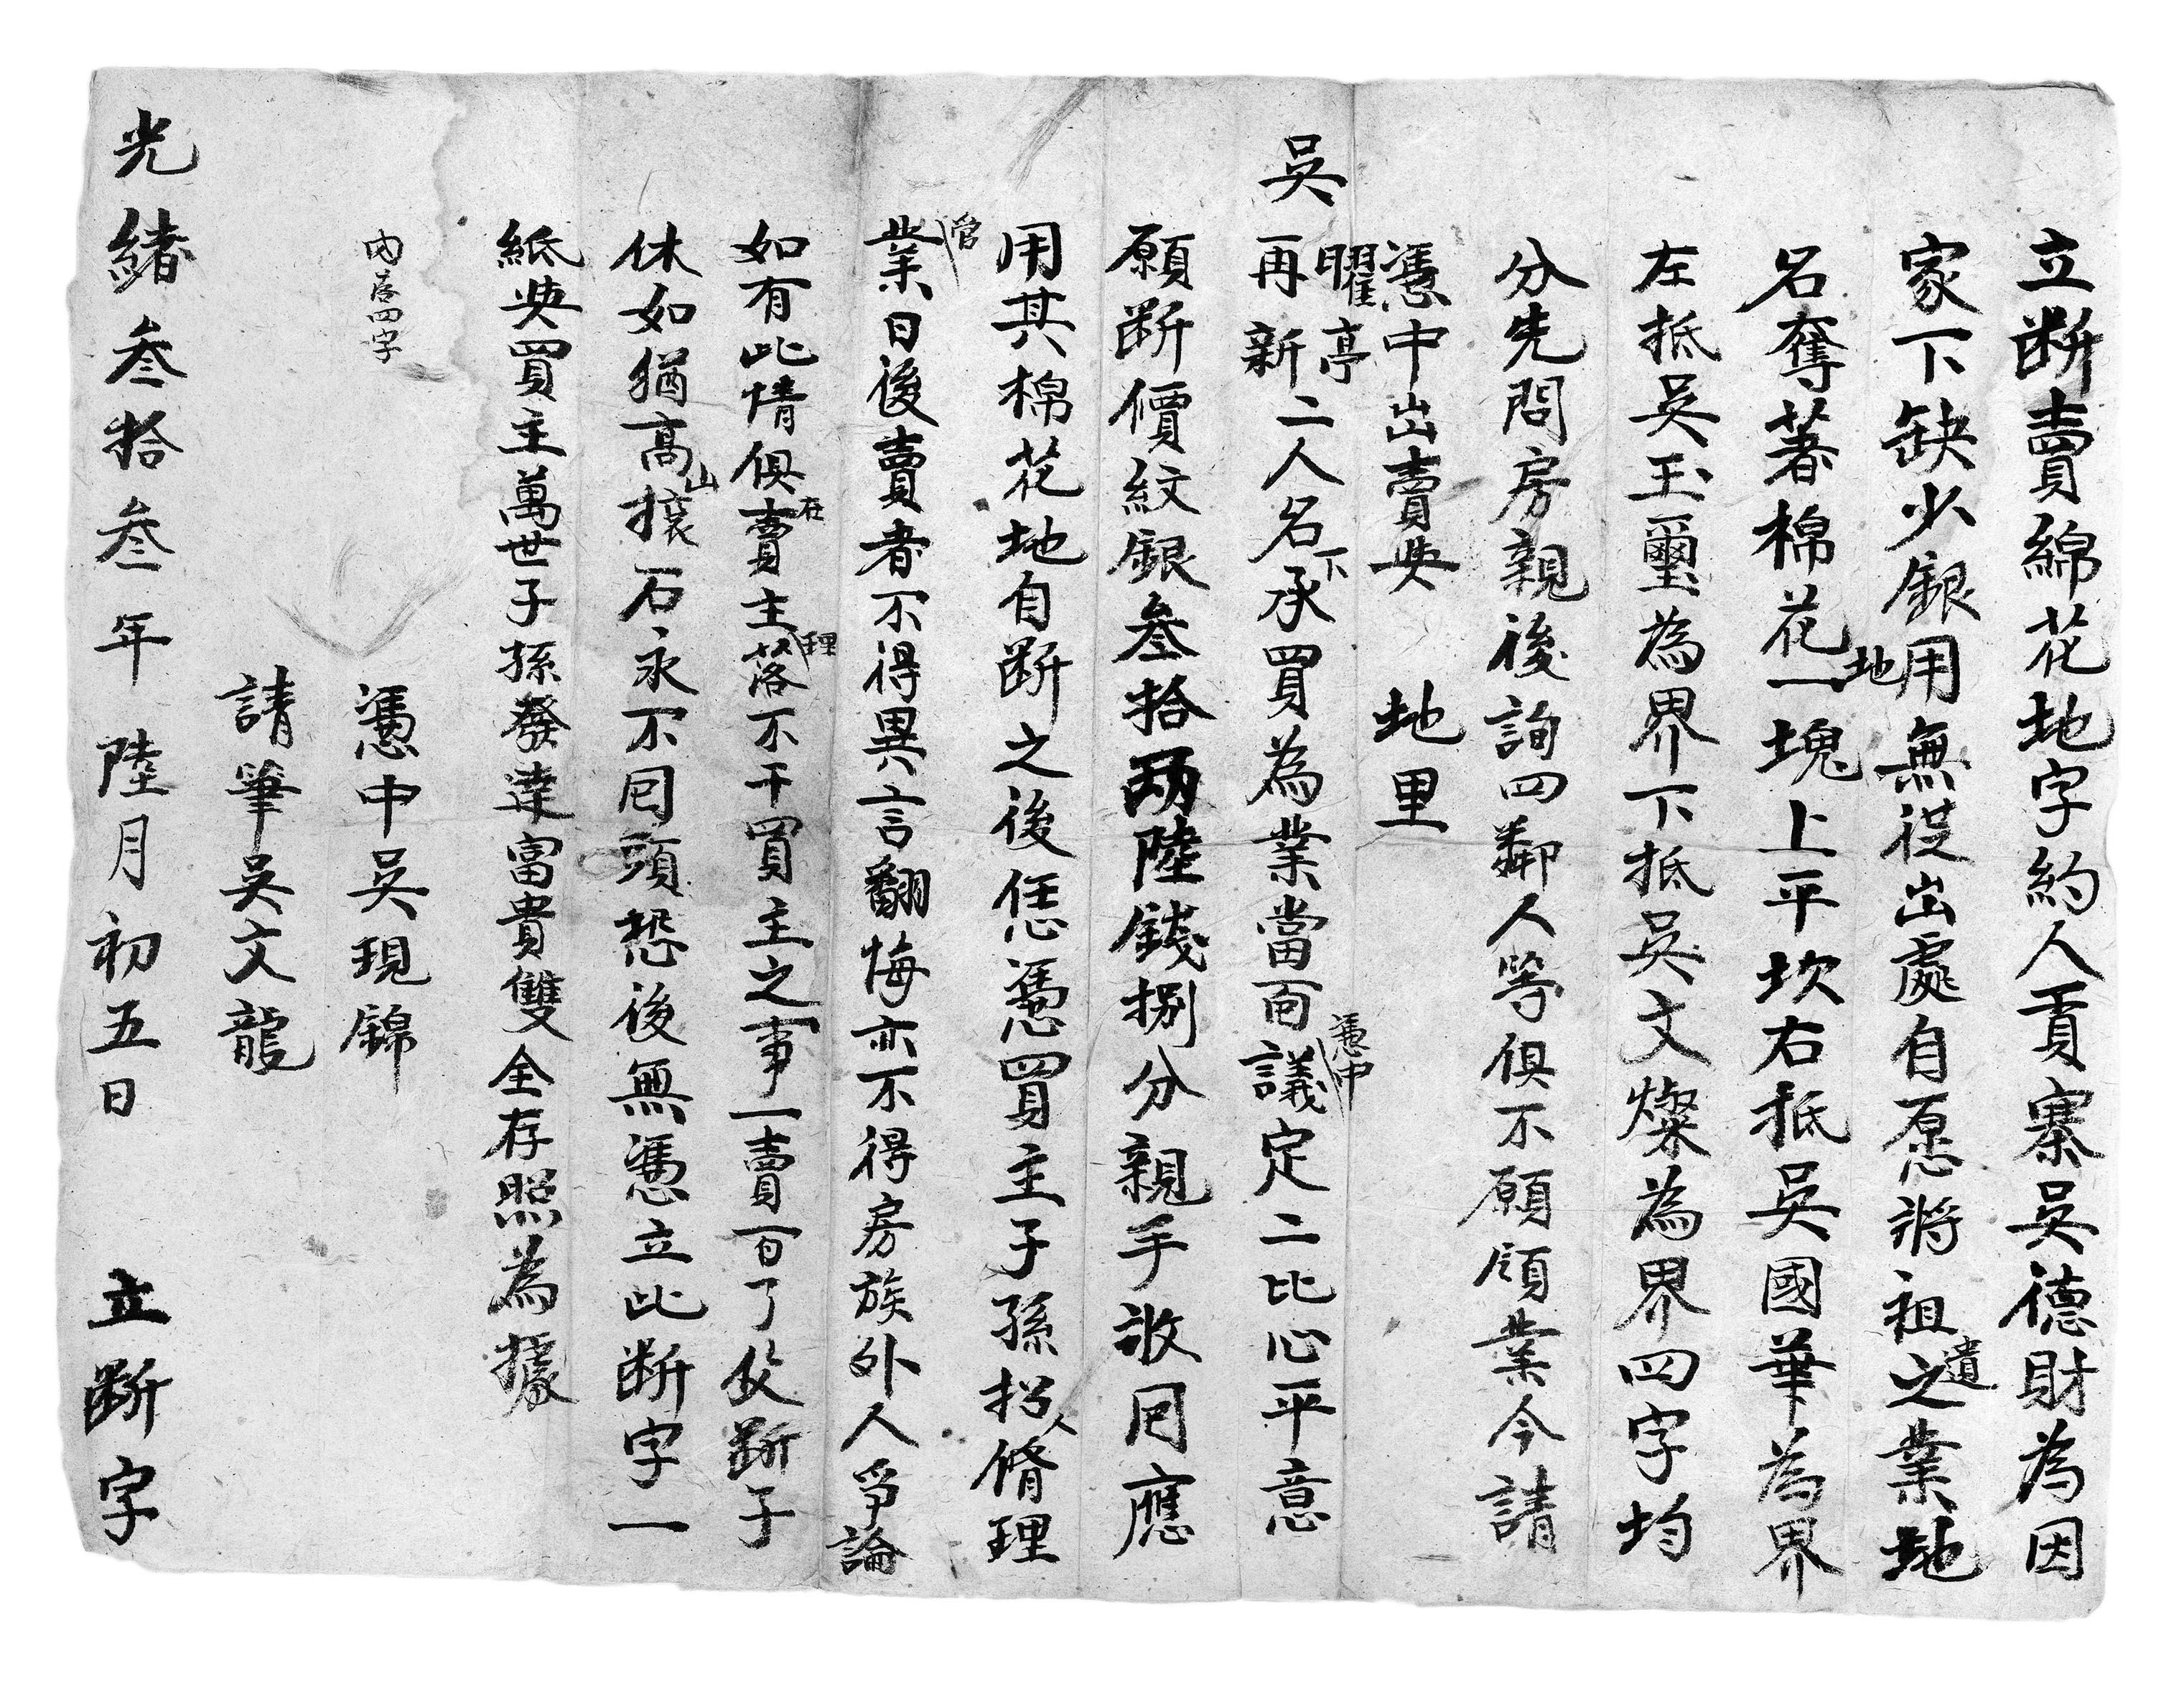 立断賣綿花地字約人貢寨吳德財為因
家下缺少銀用無從出處自愿將祖遺之業地
名奪著棉花地一塊上平坎右抵吳國華為界
左抵吳玉璽為界下抵吳文燦為界四字均
分先問房親後詢四鄰人等俱不願領業今請
憑中出賣與 地里
吳曜亭再新二人名下承買為業當面憑中議定二比心平意
願断價紋銀叁拾两陸錢捌分親手收囘應
用其棉花地自断之後恁憑買主子孫招人脩理
管業日後賣者不得異言翻悔亦不得房族外人爭論
如有此情俱在賣主理落不干買主之事一賣百了父断子
休如猶高山滾石永不囘頭恐後無憑立此断字一
紙與買主萬世子孫發達富貴雙全存照為據
内添四字
憑中吳現錦
請筆吳文龍
光緒叁拾叁年陸月初五日 立断字